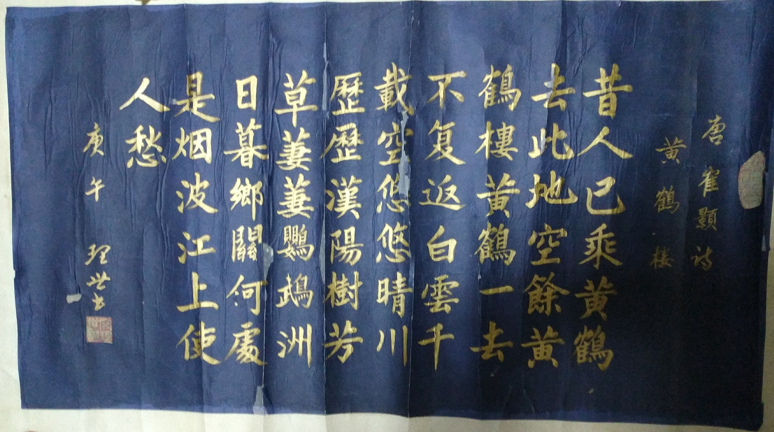 唐崔顥詩
黄鶴楼
昔人已乘黄鶴
去此地空餘黄
鶴樓黄鶴一去
不复返白雲千
載空悠悠晴川
歷歷漢陽樹芳
草萋萋鸚鵡洲
日暮鄉關何處
是烟波江上使
人愁
庚午 理世书